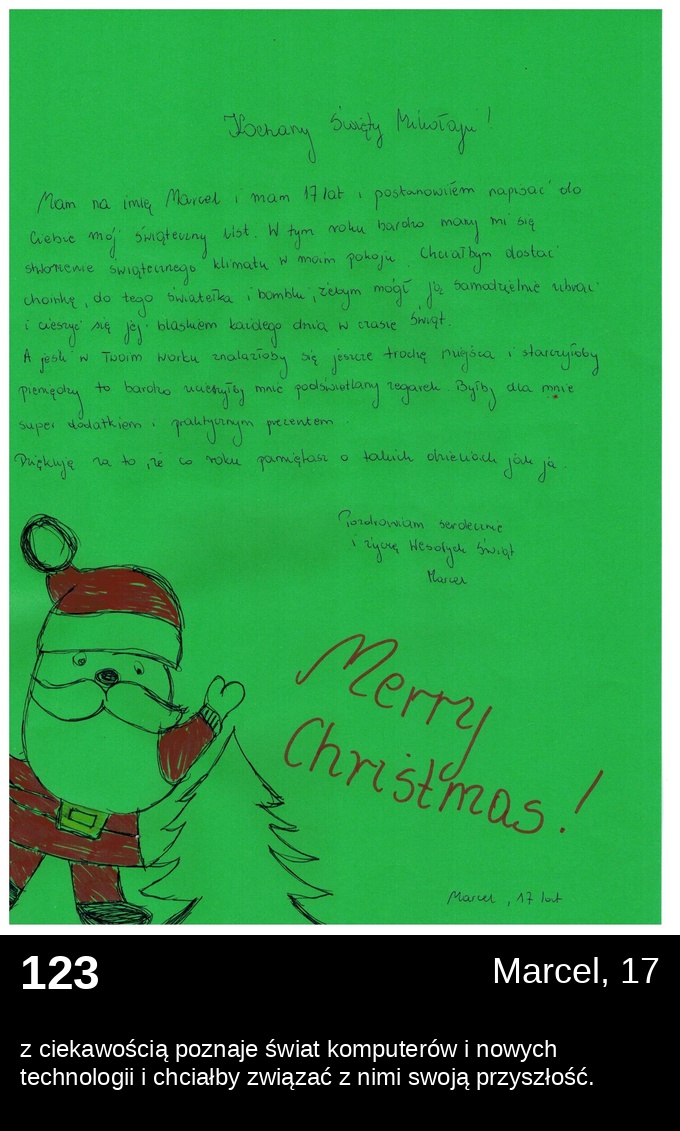 Kochany Święty Mikołaju!
Mam na imię Marcel i mam 17 lat i postanowiłem napisać do
Ciebie mój świąteczny list. W tym roku bardzo marzy mi się
stworzenie świątecznego klimatu w moim pokoju. Chciałbym dostać
choinkę, do tego światełka i bombki, żebym mógł ją samodzielnie ubrać
i cieszyć się jej blaskiem każdego dnia w czasie Świąt.
A jeśli w Twoim worku znalazłoby się jeszcze trochę miejsca i starczyłoby
pieniędzy to bardzo ucieszyłby mnie podświetlany zegarek. Byłby dla mnie
super dodatkiem i praktycznym prezentem.
Dziękuję za to, że co roku pamiętasz o takich dzieciach jak ja.
Pozdrawiam serdecznie
i życzę Wesołych Świąt
Marcel
Merry
Christmas!
Marcel, 17 lat
123
Marcel, 17
z ciekawością poznaje świat komputerów i nowych
technologii i chciałby związać z nimi swoją przyszłość.